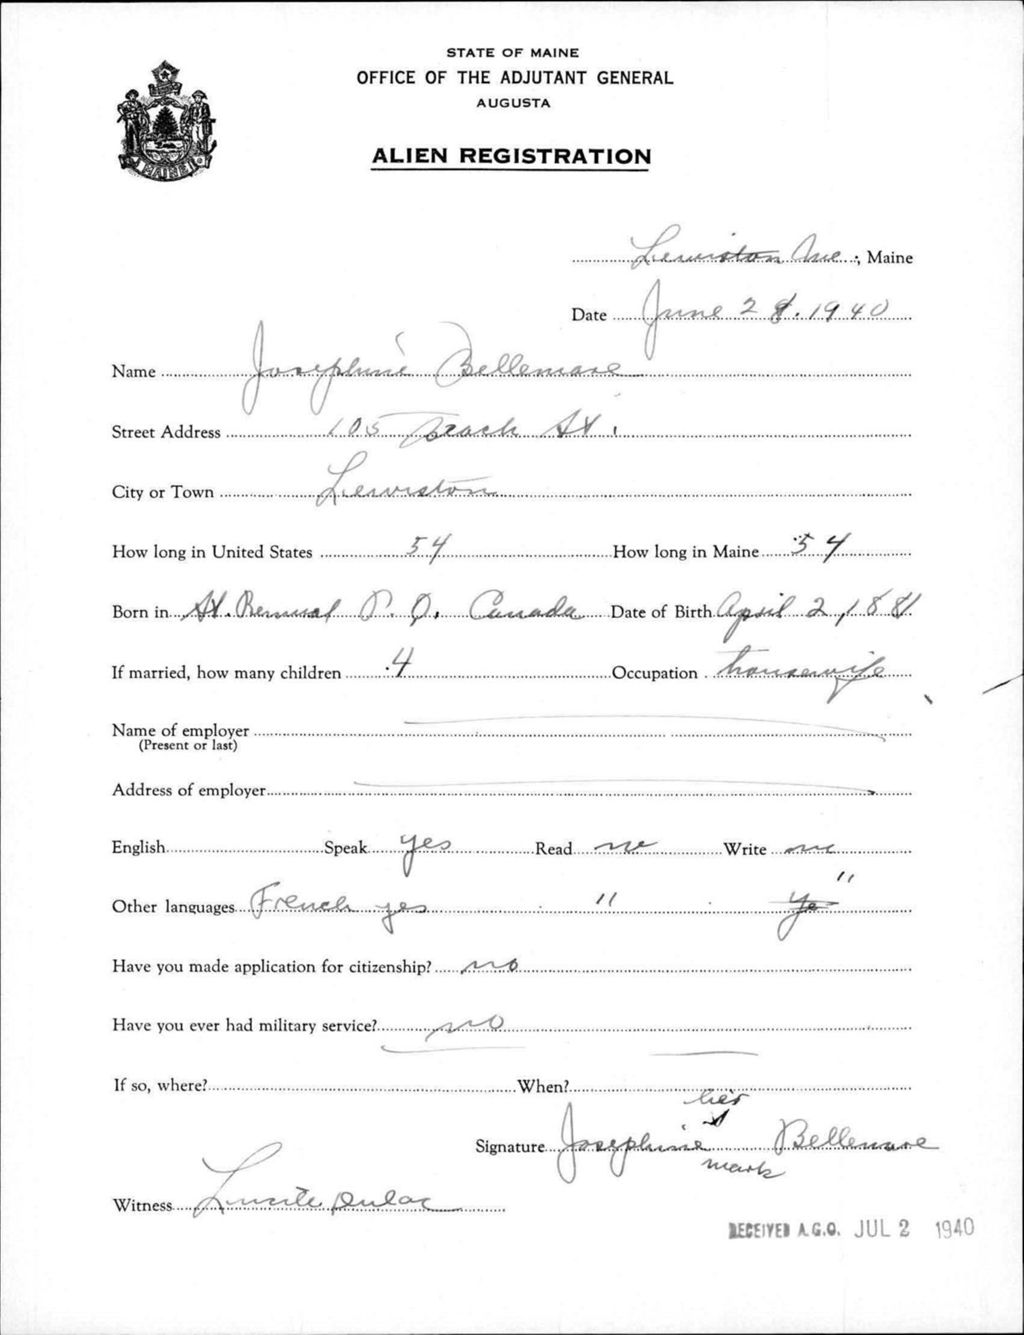 STATE OF MAINE
OFFICE OF THE ADJUTANT GENERAL
AUGUSTA
ALIEN REGISTRATION
MAINE
Lewiston Me., Maine
Date June 28. 1940
Name Josephine Bellemare
Street Address 105 Beach St.
City or Town Lewiston
How long in United States 54 How long in Maine 54
Born in St. P. Q. Canada Date of Birth April 2, 1881
If married, how many children 4 Occupation housewife
Name of employer
(Present or last)
Address of employer
English Speak yes Read no Write no
Other languages French yes " Ye "
Have you made application for citizenship? no
Have you ever had military service? no
If so, where? When?
her
Signature Josephine x Bellemare
mark
Witness Lucile Dulac
RECEIVED A.G.O. JUL 2 1940